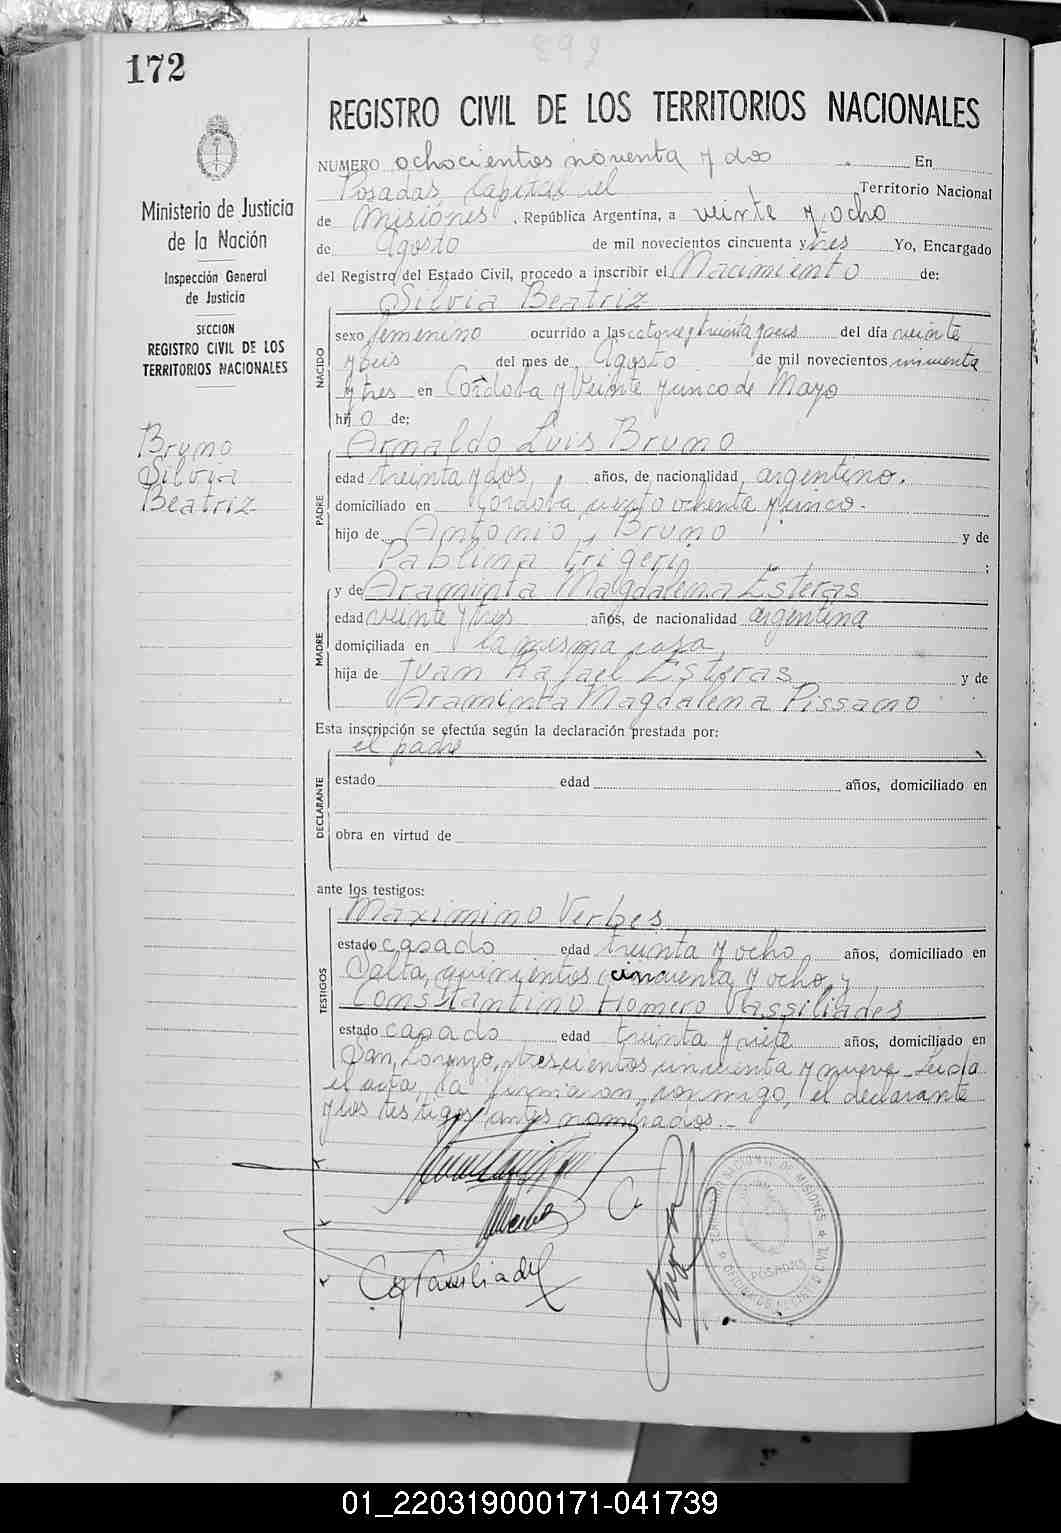 892
172
REGISTRO CIVIL DE LOS TERRITORIOS NACIONALES
Ministerio de Justicia
de la Nación
Inspección General
de Justicia
SECCION
REGISTRO CIVIL DE LOS
TERRITORIOS NACIONALES
Bruno
Silvia
Beatriz
NUMERO ochocientos noventa y dos En
Posadas Capital del Territorio Nacional
de Misiónes, República Argentina, a veinte y ocho
de Agosto de mil novecientos cincuenta y tres Yo, Encargado
del Registro del Estado Civil, procedo a inscribir el Nacimiento de:
NACIDO
Silvia Beatriz
sexo femenino ocurrido a las catorce y treinta y seis del día veinte
y seis del mes de Agosto de mil novecientos cincuenta
y tres en Córdova y Veinte y cinco de Mayo
hijo de:
PADRE
Arnaldo Luis Bruno
edad treinta y dos, años, de nacionalidad argentino.
domiciliado en Córdova ciento ochenta y cinco.
hijo de Antonio Bruno y de
Pablina Frigerio;
MADRE
y de Araminta Magdalena Esteras
edad veinte y tres años, de nacionalidad argentina
domiciliada en la misma casa,
hija de Juan Rafael Esteras y de
Araminta Magdalena Pissano
Esta inscripción se efectúa según la declaración prestada por:
el padre
DECLARANTE
estado edad años, domiciliado en
obra en virtud de
ante los testigos:
TESTIGOS
Maximino Verbes
estado casado edad treinta y ocho años, domiciliado en
Salta, quinientos cincuenta y ocho, y
Constantino Homero Vassiliades
estado casado edad treinta y siete años, domiciliado en
San Lorenzo, trescientos cincuenta y nueve. Leida
el acta, la firmaron, conmigo, el declarante
y los testigos antes nombrados.-
POSADAS
01_220319000171-041739